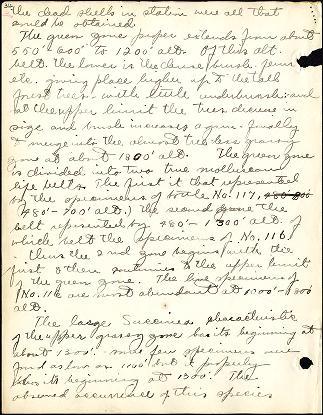 the dead shells in station were all that
could be obtained.
The green zone proper extends from about
550'-600' to 1200' alt. Of this alt.
belt the lower is the dense brush, ferns
etc. giving place higher up to the tall
forest trees with little underbrush; and
at the upper limit the trees decrease in
size and brush increases again finally
merge into the almost treeless grassy
zone at about 1300' alt. The green zone
is divided into two true molluscan
life belts. The first is that represented
by the specimens of bottle No. 117,
(480'-700' alt.) the second zone the
belt represented by 480'-1300' alt. of
which belt the specimens of No. 116
thus the 2nd zone begins with the
first & then continues to the upper limit
of the green zone. The live specimens of
No. 116 are most abundant at 1000'-1300'
alt.
The large Succinea characteristic
of the upper grassy zone has its beginning at
about 1300'. Some few specimens were
found as low as 1100' but it properly
has its beginning at 1300'. The
observed occurrence of this species